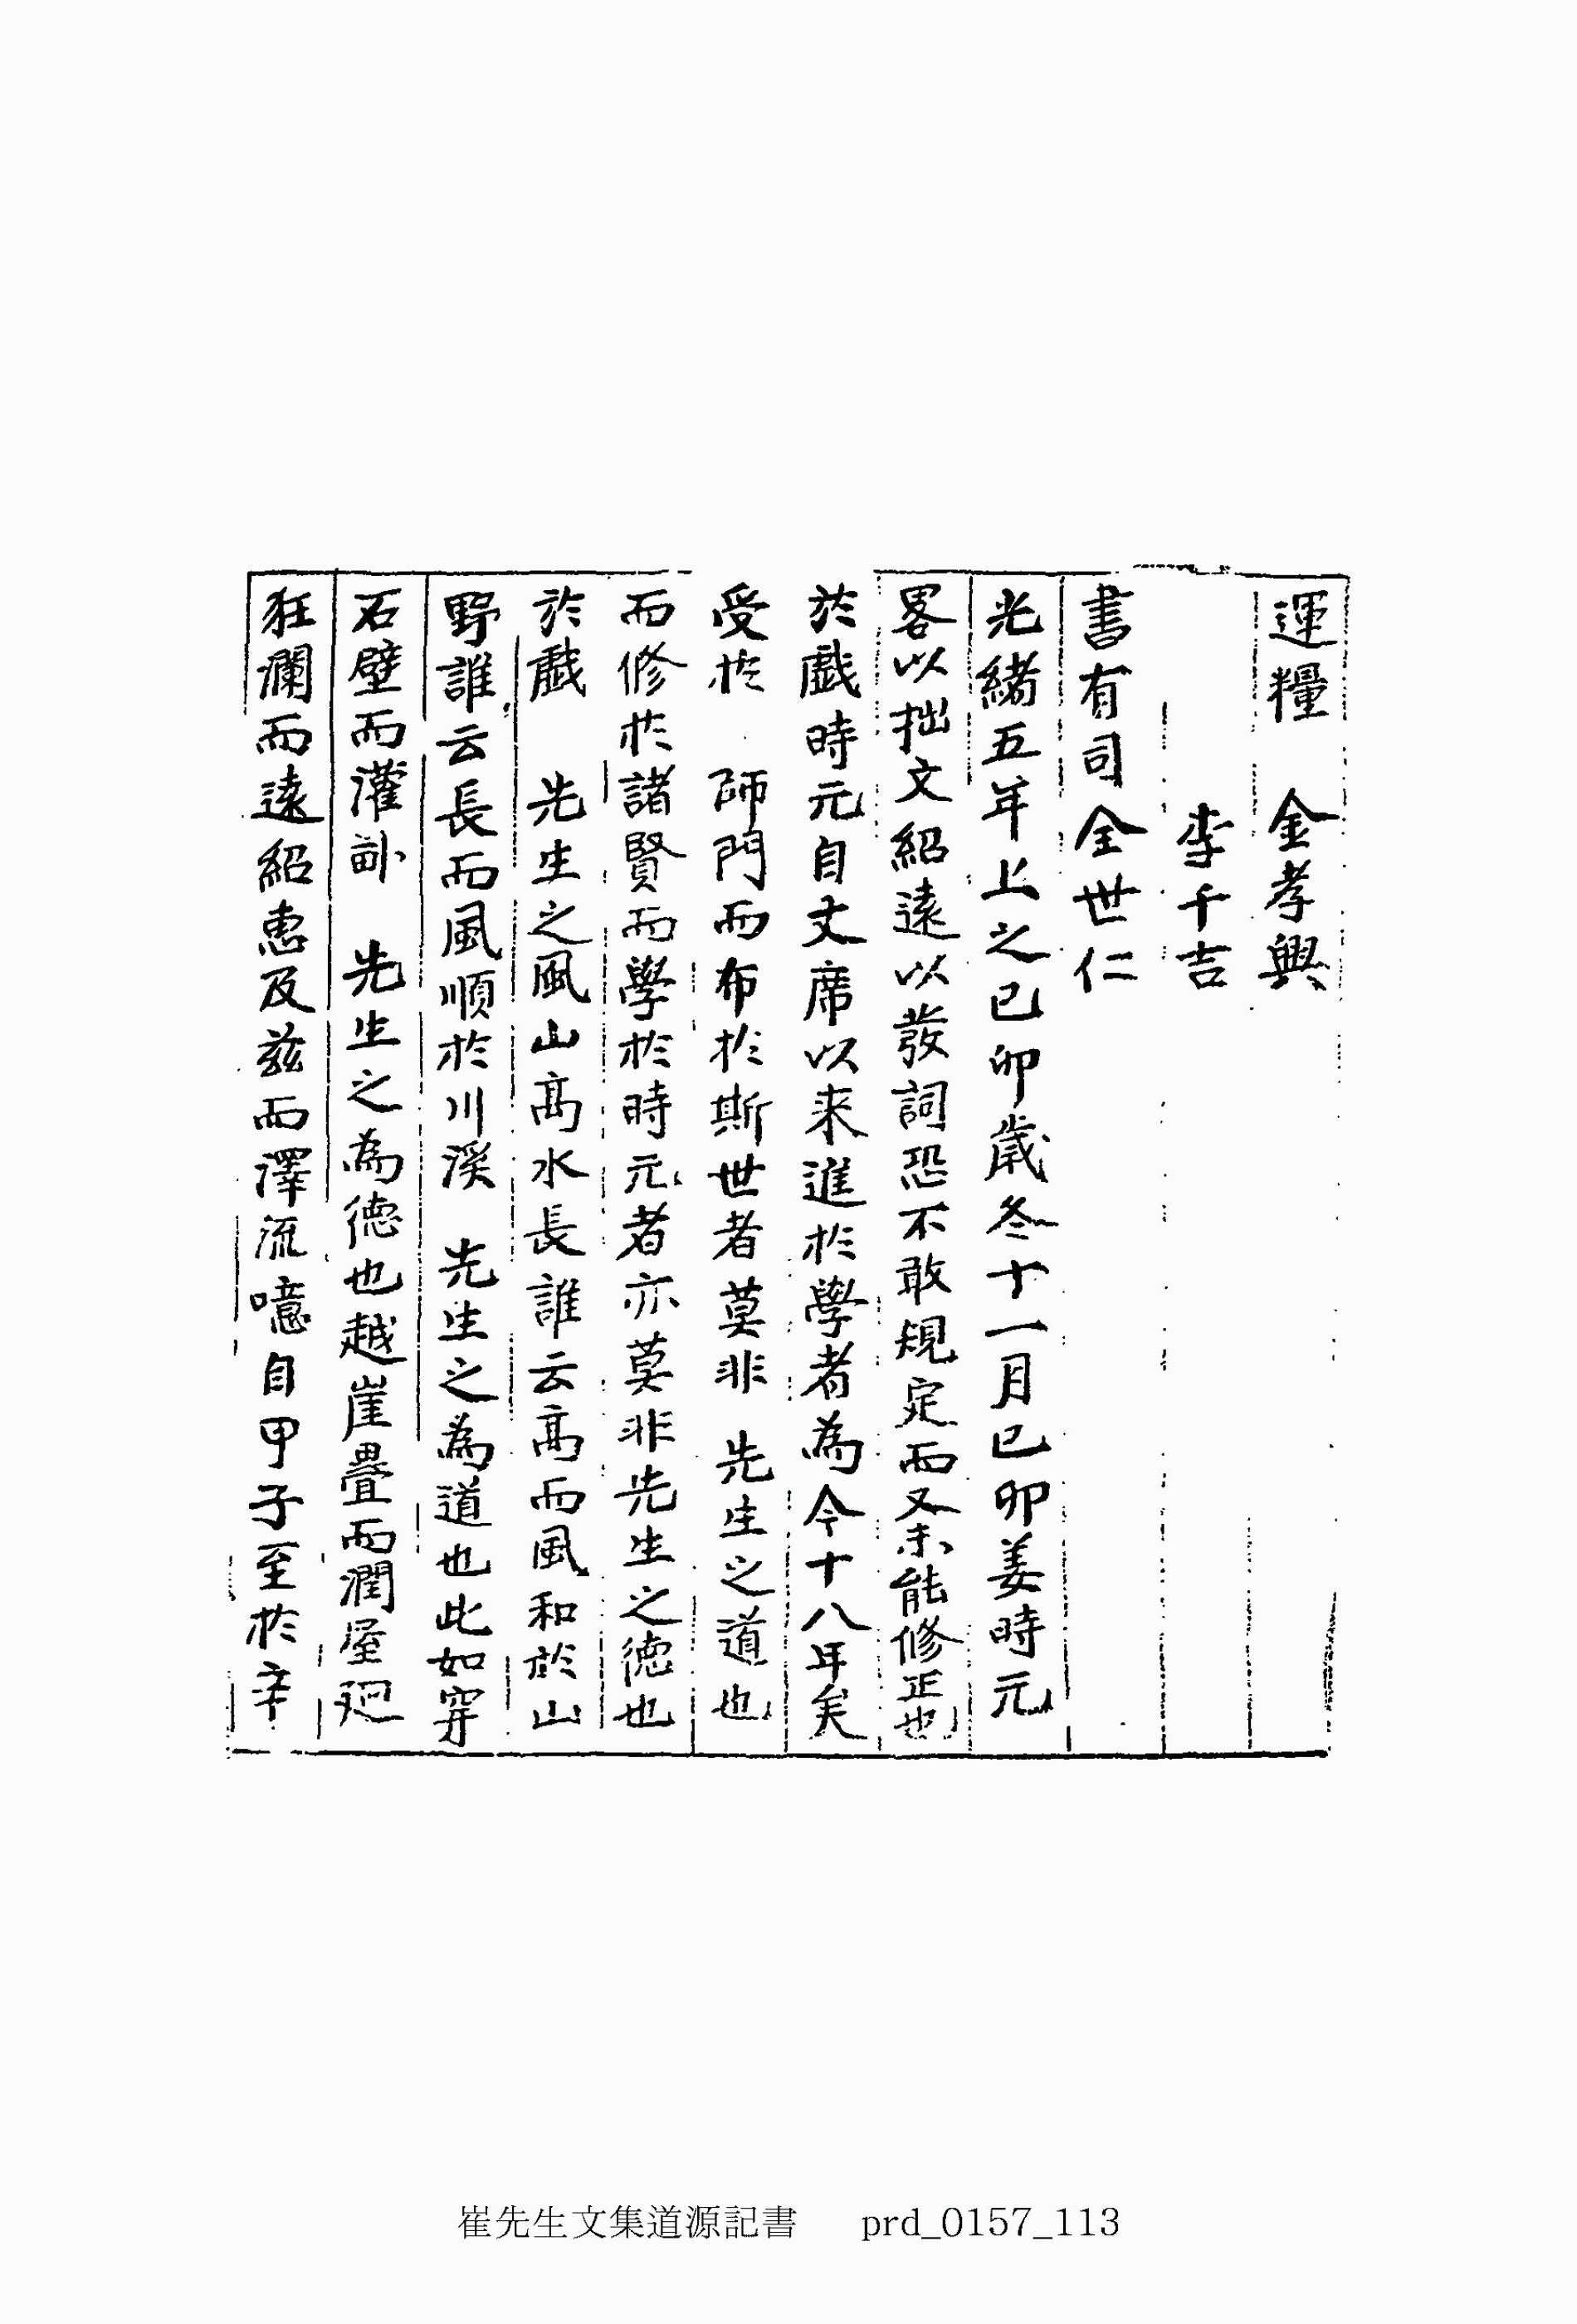 運糧　金孝興
李千吉
書有司全世仁
光緖五年上之己卯歲冬十一月己卯姜時元
畧以拙文紹遠以發詞恐不敢規定而又未能修正也
於戱時元自丈席以来進於學者為今十八年矣
受於　師門而布於斯世者莫非　先生之道也
而修於諸賢而學於時元者亦莫非先生之德也
於戱　先生之風山高水長誰云高而風和於山
野誰云長而風順於川溪　先生之為道也此如穿
石壁而灌　先生之為德也越崖疊而潤屋廻
狂瀾而遠紹惠及茲而澤流噫自甲子至於辛
崔先生文集道源記書　prd_0157_113